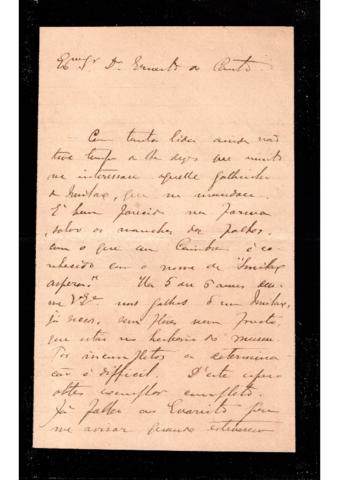 Exmo Sr Dr Ernesto do Canto
Com tanta lida ainda não
tive tempo a lhe dizer que muito
me interessou aquelle galhinho
de Smilax, que me mandou.
É bem parecido na forma,
sobre as manchas das folhas,
com o que em Coimbra é co-
nhecido com o nome de "Smilax
aspera." Ha 5 ou 6 annos deu-
me V. Exa uns galhos d'um Smilax,
já secos, sem flores nem fructo,
que estão no herbario do museu.
Por incompletos a determina-
ção é difficil. D'este espero
obter exemplar completo.
Já fallei ao Evaristo para
me avisar quando estiverem